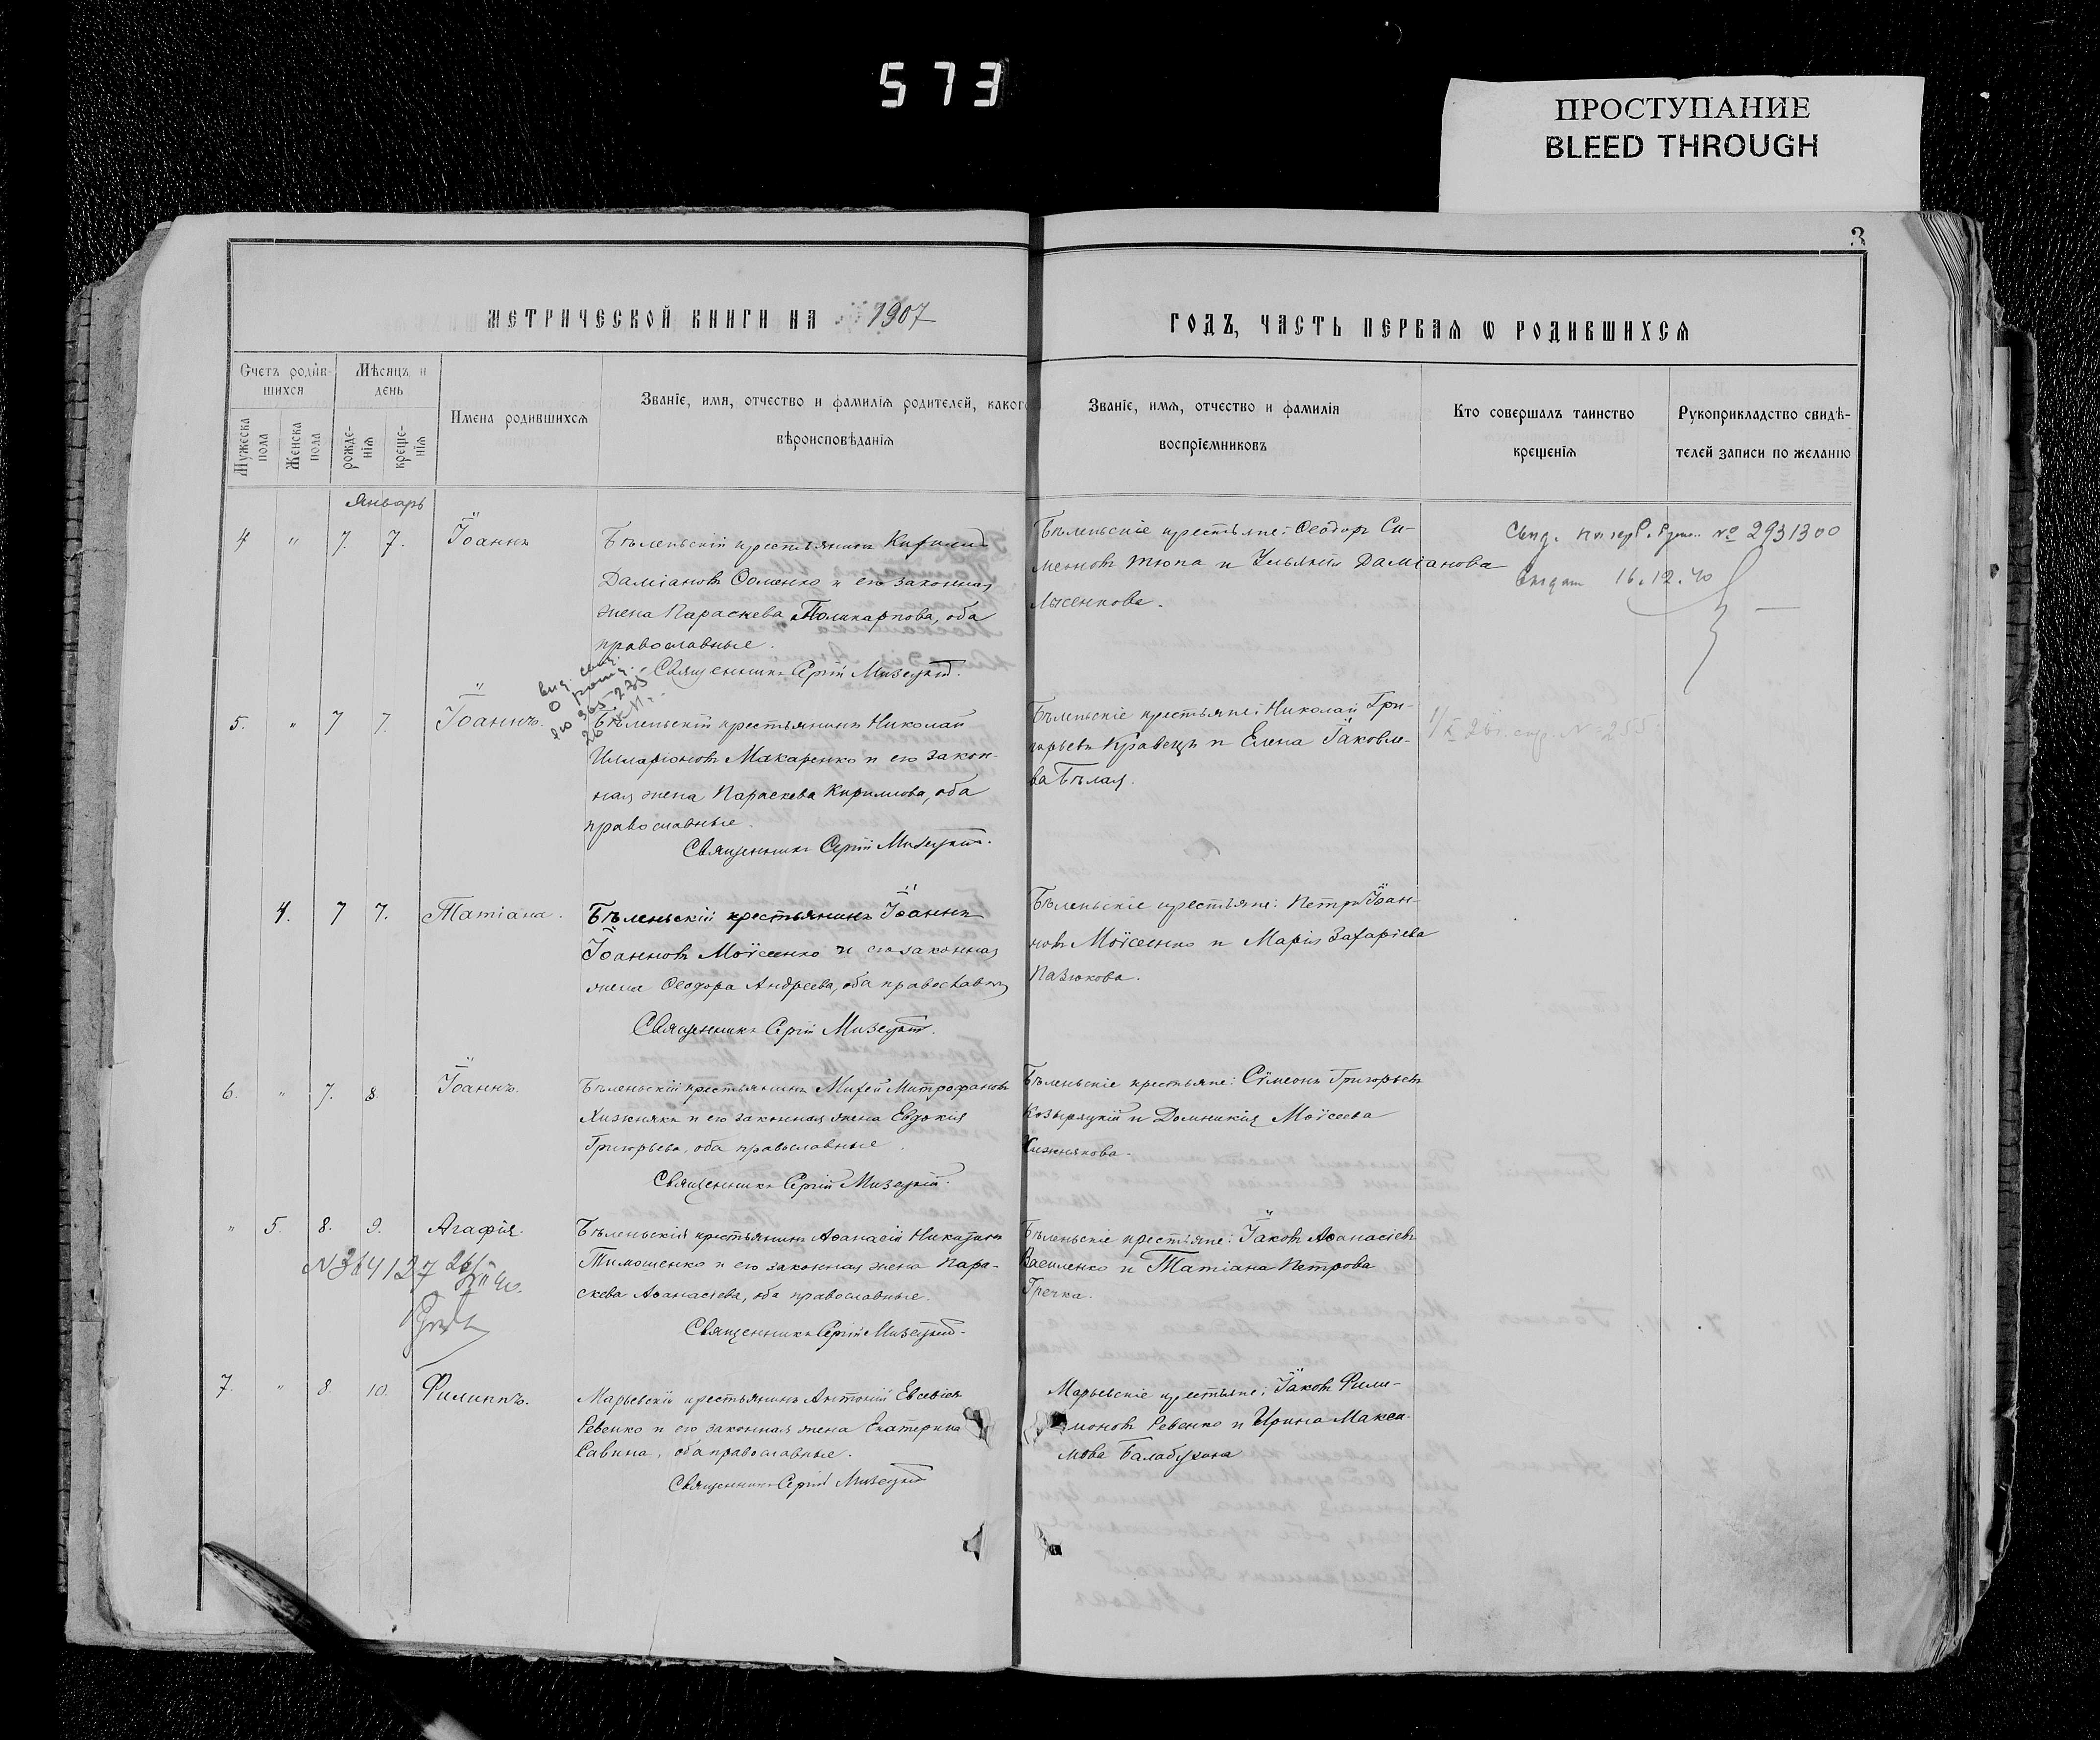 573
ПРОСТУПАНИЕ
BLEED THROUGH
3
МЕТРИЧЕСКОЙ КНИГИ НА 1907
ГОДЪ, ЧАСТЬ ПЕРВАЯ Ѡ РОДИВШИХСЯ
Счетъ родив-
шихся
Мѣсяцъ и
день
Мужеска
пола
Женска
пола
рожде-
нія
креще-
нія
Имена родившихся
Званіе, имя, отчество и фамилія родителей, каког
вѣроисповѣданія
Званіе, имя, отчество и фамилія
воспріемниковъ
Кто совершалъ таинство
крещенія
Рукоприкладство свидѣ-
телей записи по желанію
Январь
4 " 7. 7. Іоаннъ
Бѣленьскій крестьянинъ Кириллъ
Даміановъ Соменко и его законная
жена Параскева Поликарпова, оба
православные.
Священникъ Сергій Мизецкій.
Бѣленьскіе крестьяне: Ѳеодоръ Си-
меоновъ Тюпа и Ульянія Даміанова
Лысенкова.
№ 2931300
16.12.40
5. " 7 7. Іоаннъ.
Бѣленьскій крестьянинъ Николай
Илларіоновъ Макаренко и его закон-
ная жена Параскева Кириллова, оба
православные.
Священникъ Сергій Мизецкій.
Бѣленьскіе крестьяне: Николай Гри-
горьевъ Кравецъ и Елена Іаковле-
ва Бѣлая.
4. 7 7. Татіана.
Бѣленьскій крестьянинъ Іоаннъ
Іоанновъ Моісеенко и его законная
жена Ѳеодора Андреева, оба православн
Священникъ Сергій Мизецкій.
Бѣленьскіе крестьяне: Петръ Іоан-
новъ Моісеенко и Марія Захаріева
Пазюкова.
6. " 7. 8. Іоаннъ.
Бѣленьскій крестьянинъ Михей Митрофановъ
Хижнякъ и его законная жена Евдокія
Григорьева, оба православные.
Священникъ Сергій Мизецкій.
Бѣленьскіе крестьяне: Сімеонъ Григорьевъ
Козыряцкій и Домникія Моісеева
Хижнякова.
" 5 8. 9. Агафія.
Бѣленьскій крестьянинъ Аѳанасій Никитинъ
Тимошенко и его законная жена Пара-
скева Аѳанасіева, оба православные.
Священникъ Сергій Мизецкій.
Бѣленьскіе крестьяне: Іаковъ Аѳанасіевъ
Василенко и Татіана Петрова
Гречка.
7. " 8. 10. Филиппъ.
Марьевскій крестьянинъ Антоній Евсевіевъ
Ревенко и его законная жена Екатерина
Савина, оба православные.
Священникъ Сергій Мизецкій
Марьевскіе крестьяне: Іаковъ Фили-
моновъ Ревенко и Ирина Макси-
мова Балабухина